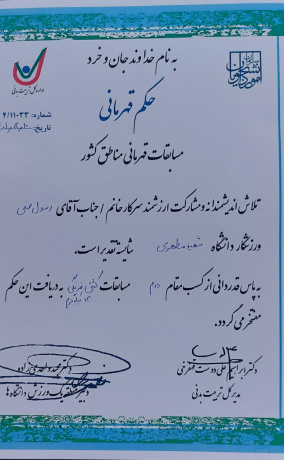 به نام خداوند جان و خرد
حکم قهرمانی
اداره کل تربیت بدنی
شماره: ۴/۱۱۰۳۳
تاریخ:
مسابقات قهرمانی مناطق کشور
تلاش اندیشمندانه و مشارکت ارزشمند سرکار خانم / جناب آقای رسول
ورزشکار دانشگاه شهید مطهری شایسته تقدیر است.
به پاس قدردانی از کسب مقام دوم مسابقات کشتی فرنگی به دریافت این حکم
مفتخر می گردد.
دکتر ابراهیم علی دوست قهفرخی
مدیر کل تربیت بدنی
دکتر محمد واحدی زاده
دبیر منطقه یک ورزش دانشگاه ها